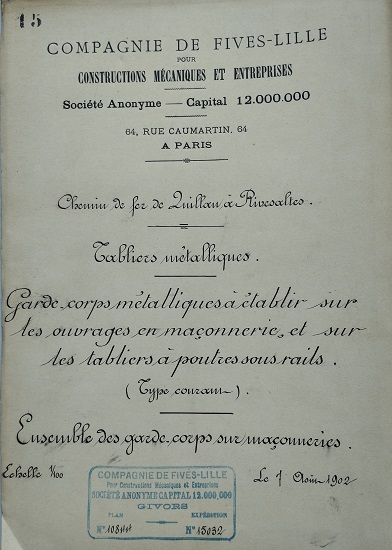 15
COMPAGNIE DE FIVES-LILLE
POUR
CONSTRUCTIONS MÉCANIQUES ET ENTREPRISES
Société Anonyme — Capital 12.000.000
64, RUE CAUMARTIN, 64
A PARIS
Chemin de fer de Quillan à Rivesaltes.
Tabliers métalliques.
Garde-corps métalliques à établir sur
les ouvrages en maçonnerie, et sur
les tabliers à poutres sous rails.
(Type courant).
Ensemble des garde-corps sur maçonneries.
Echelle 1/100
Le Août 1902
COMPAGNIE DE FIVES-LILLE
Pour Constructions Mécaniques et Entreprises
SOCIÉTÉ ANONYME CAPITAL 12.000.000
GIVORS
PLAN EXPÉDITION
N° N° 15032